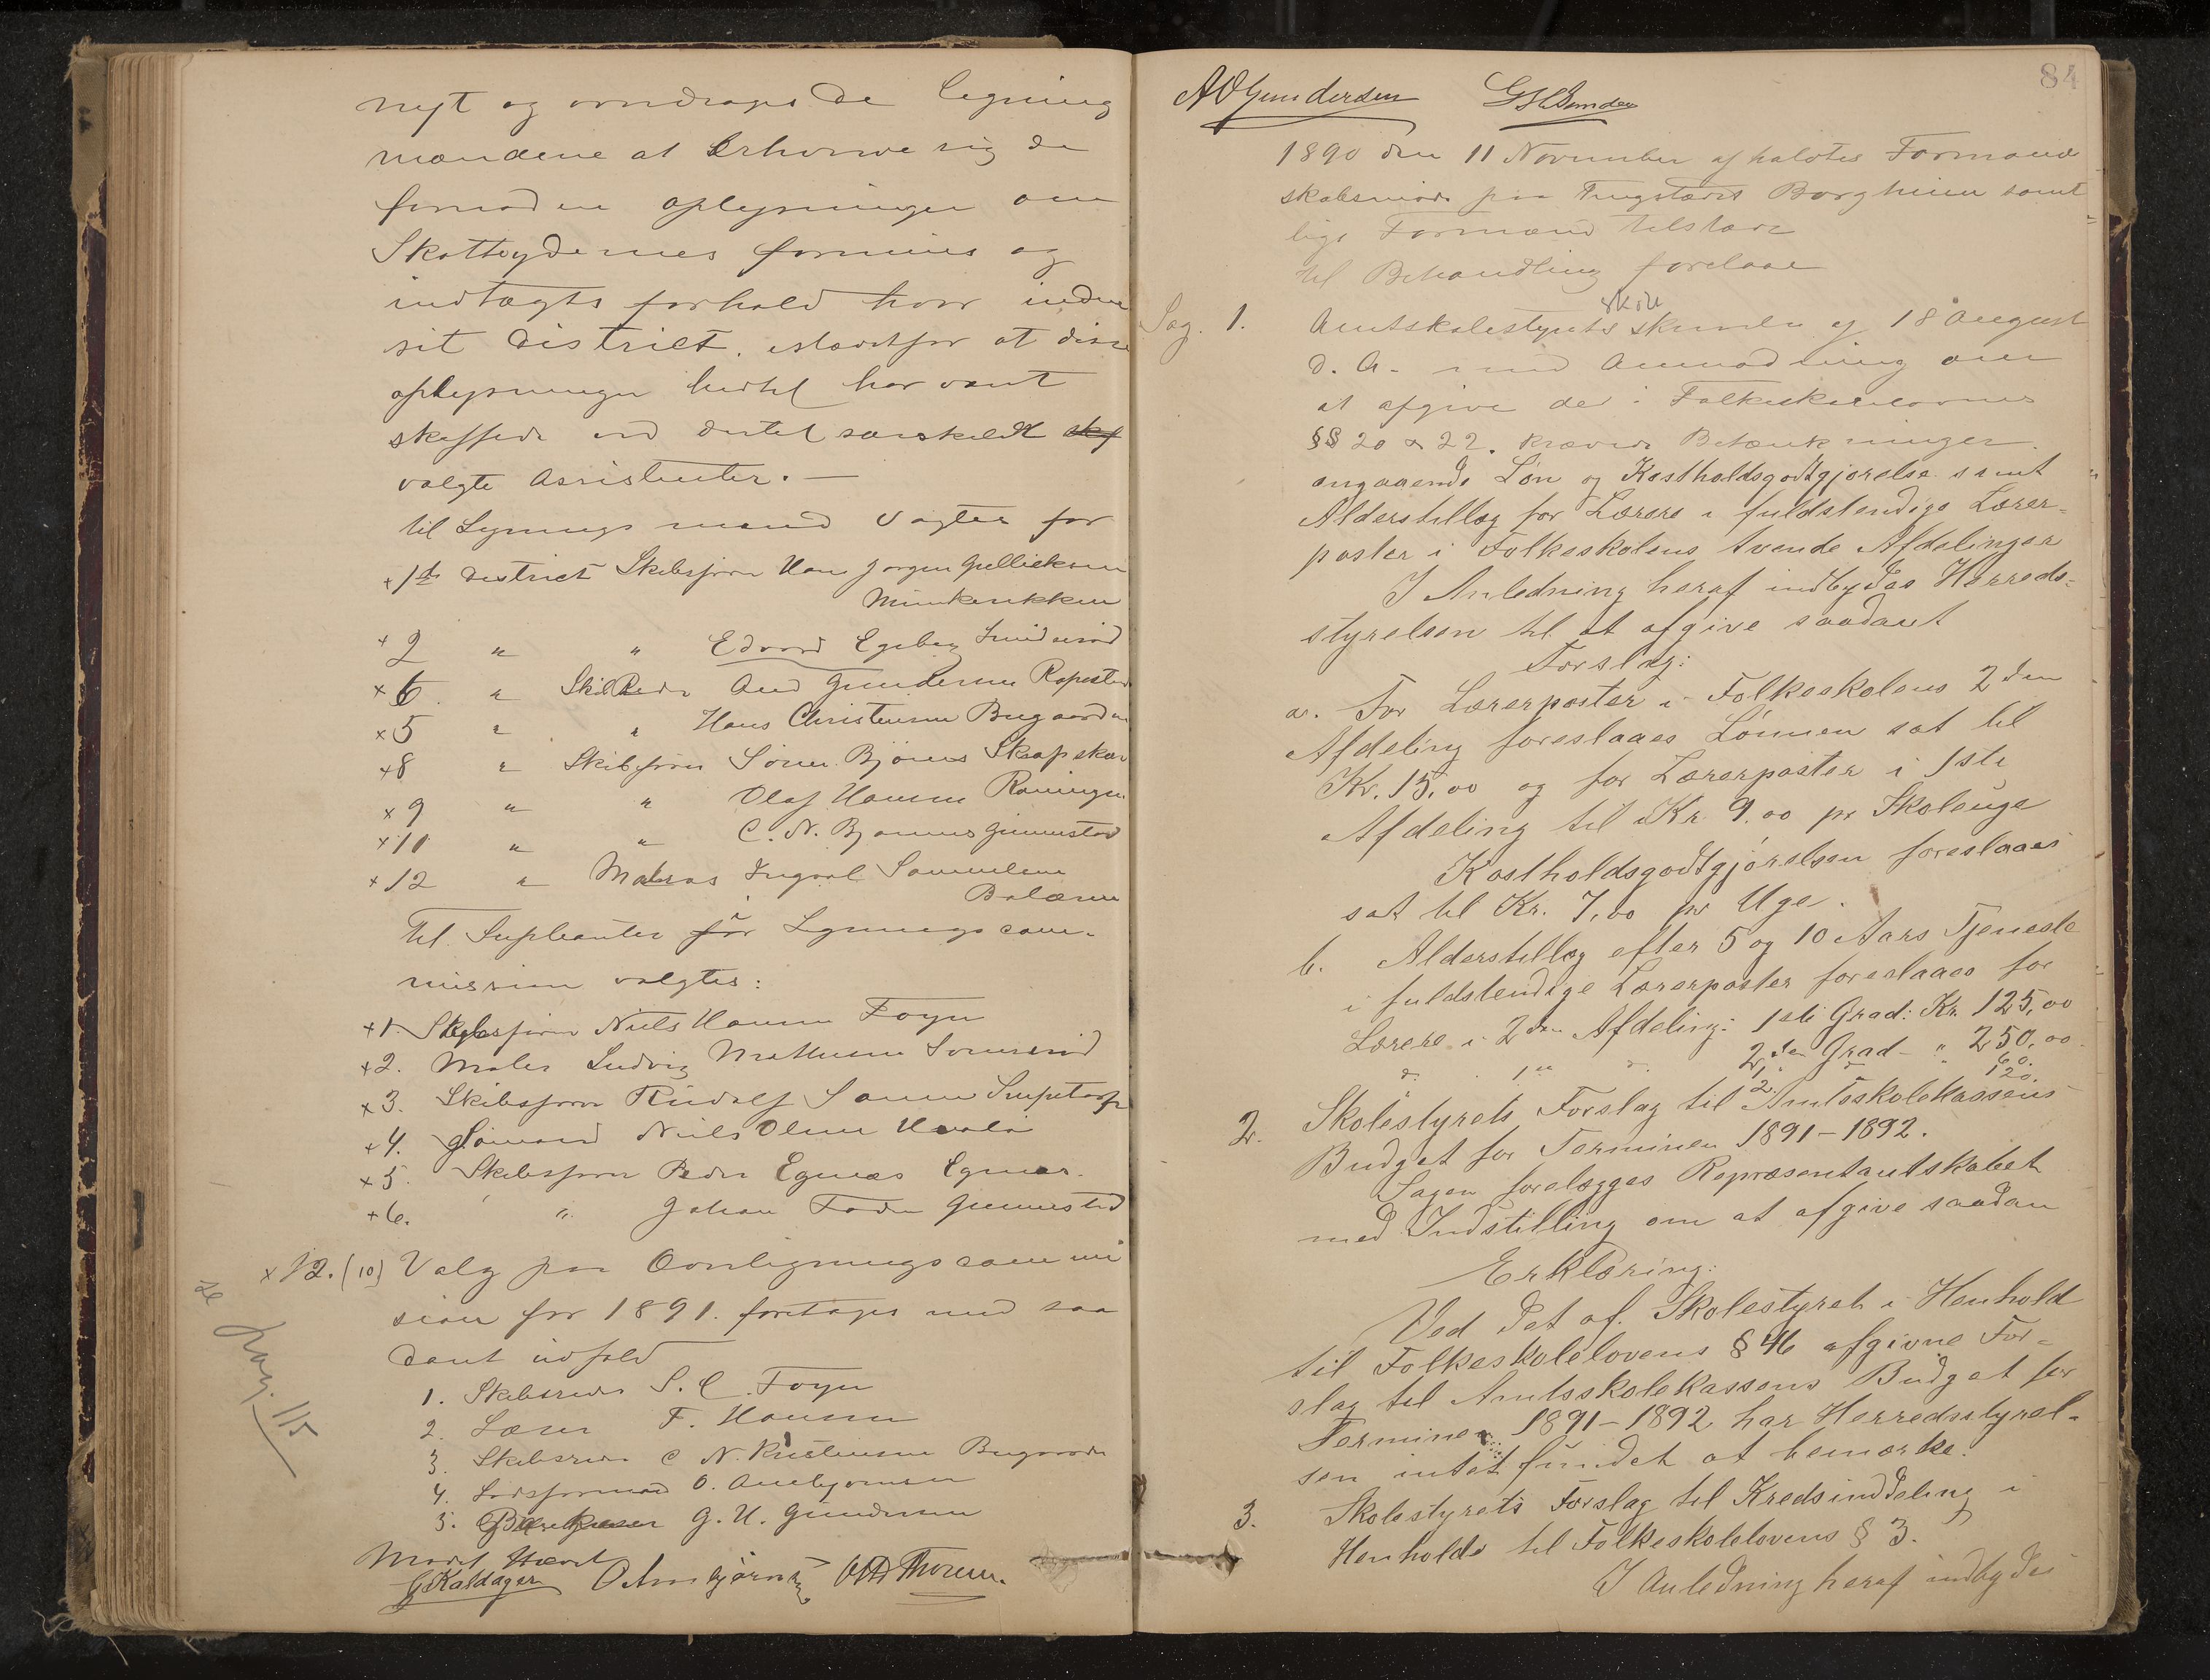 nyt og de ligning
mændene at Erhverve sig de
fornødne oplysninger om
Skatteydernes formues og
indtægts forhold hver inden
sit District. istedetfor at disse
oplysninger hertil har vært
skaffede ved dertil særskildt
valgte Assistenter. —
til Lignings mænd valgtes for
+ 1ste District Skibsfører Hans Jørgen Gulliksen
Munkerekken
+ 2 " " Edvard Egeberg
× 6 " And Gundersen
× 5 " " Hans Christensen Bugaarden
+8 " Skibsfører Søren Bjønnes
× 9 " " Olaf Hansen
× 11 " " C. N. Bjønnes Gunnestad
+ 12 " Matros Ingval Samuelsen
Bolæren
til Supleanter for Lignings com-
mission valgtes:
+1. Skibsfører Niels Hansen Føyn
+2. Maler Ludvig Mathisen
×3. Skibsfører Rudolf
+4. Niels Olsen
×5. Skibsfører Peder Egenæs Egenæs.
+6. " Johan Gunnestad
× 12. (10) Valg paa Overlignings commi
sion for 1891. foretages med saa
dant udfald
1. Skibsreder S. C. Foyn
2. F. Hansen
3. Skibsreder C N. Kristensen Bugaarden
4. Lodsformand O. Annbjørnsen
5. G. H. Gundersen
se pag. 115
G Kaldager O Annbjørnsen
84
AOGundersen
1890 den 11 November afholdtes Formand
skabsmøde paa Thingstedet Borgheim samt
lige Formænd tilstæde
til Behandling forelaae
Sag. 1. Amtskolestyrets skrivelse af 18 August
d. A. med Anmodning om
at afgive de i Folkeskolelovens
§§ 20 & 22. krævede Betænkninger.
angaaende Løn og Kostholdsgodtgjørelse samt
Alderstillæg for Lærere i fuldstendige Lærer-
poster i Folkeskolens tvende Afdelinger
I Anledning heraf indbydes Herreds-
styrelsen til at afgive saadant
Forslag:
a. For Lærerposter i Folkeskolens 2den
Afdeling foreslaaes Lønnen sat til
Kr. 15,00 og for Lærerposter i 1ste
Afdeling til Kr 9,00 pr Skoleuge
Kostholdsgodtgjørelsen foreslaaes
sat til Kr. 7,00 pr Uge.
b. Alderstillæg efter 5 og 10 Aars Tjeneste
i fuldstendige Lærerposter foreslaaes for
Lærere i 2den Afdeling: 1ste Grad: Kr. 125,00
2den Grad - " 250,00
d. 1ste d. 1. d 60.
2. 120.
2. Skolestyrets Forslag til Amtsskolekassens
Budget for Terminen 1891-1892.
Sagen forelægges Repræsentantskabet
med Indstilling om at afgive saadan
Erklæring:
Ved det af Skolestyret i Henhold
til Folkeskolelovens § 46 afgivne For-
slag til Amtsskolekassens Budget for
Terminen 1891-1892 har Herredsstyrel-
sen intet fundet at bemærke.
3. Skolestyrets Forslag til Kredsinddeling i
Henholds til Folkeskolelovens § 3.
I Anledning heraf indbydes